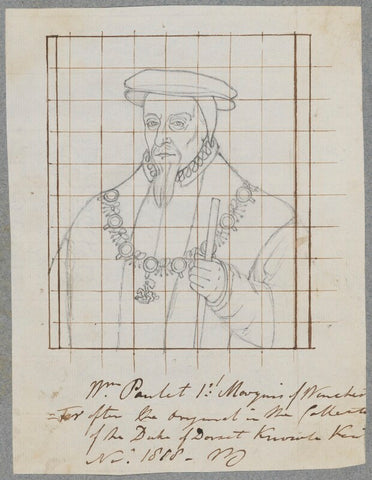 Wm Paulet 1st Marquis of Winches
=ter after the original in the Collect
of the Duke of Dorset Knowle Ken
Nov. 1818 -